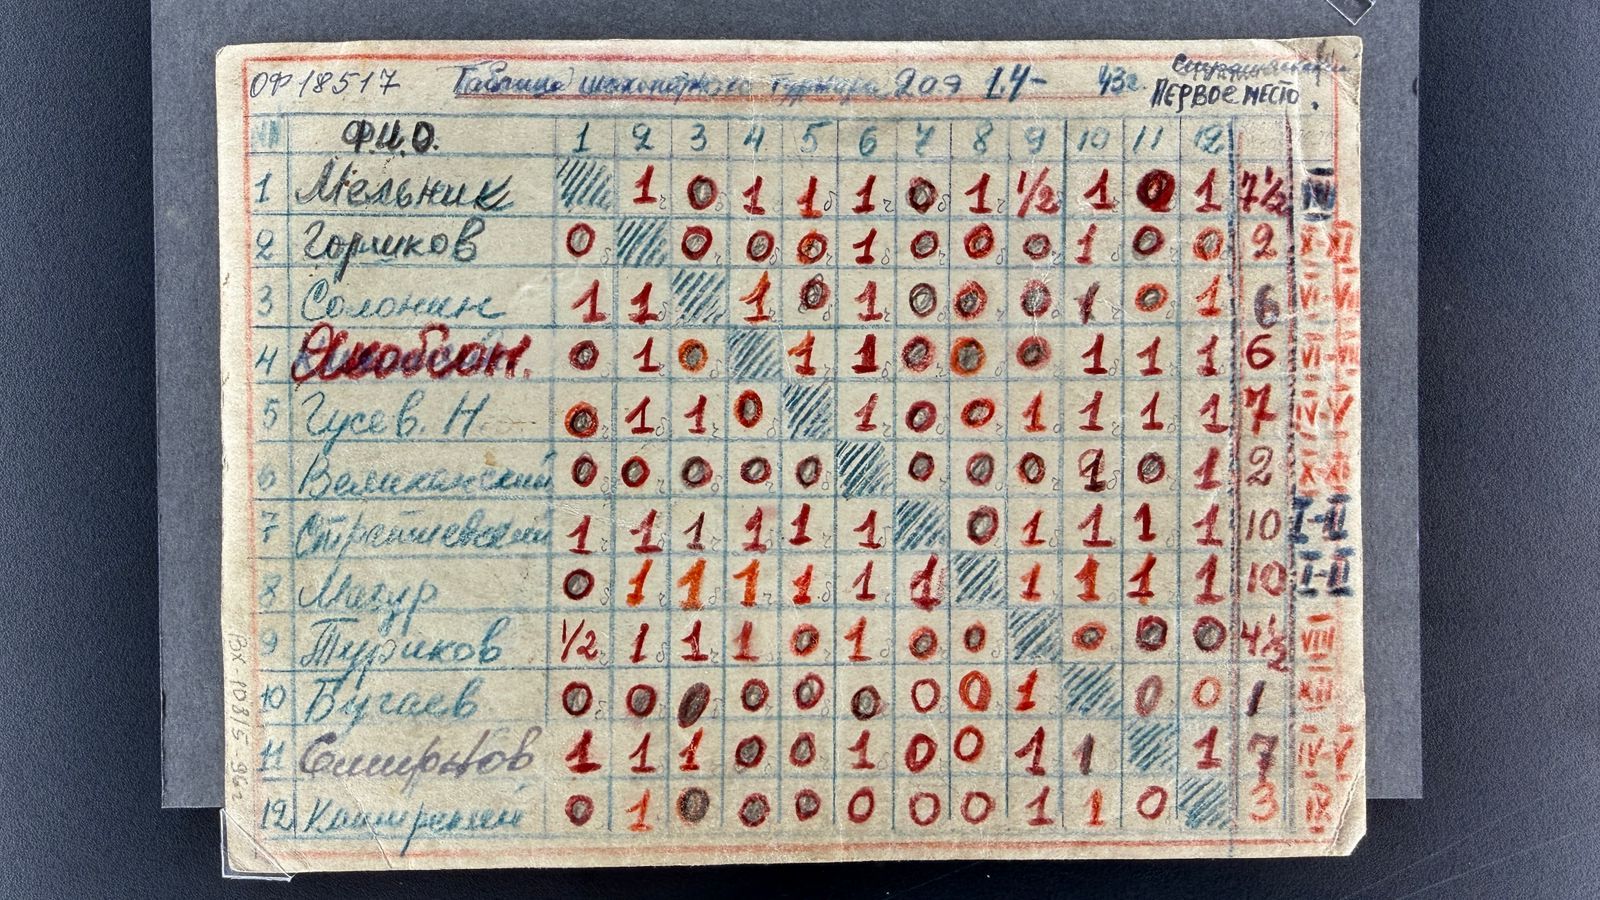 ОФ 18517 Таблица шахматного турнира 20 Л-
43г.
ПЕРВОЕ МЕСТО.
Ф.И.О. 1 2 3 4 5 6 7 8 9 10 11 12
1 Мельник 1 0 1 1 1 0 1 1/2 1 0 1 7 1/2 IV
2 Горшков 0 0 0 0 1 0 0 0 1 0 0 2 X-XI
3 Солонин 1 1 1 0 1 0 0 0 1 0 1 6 VI-VII
4 Якобсон. 0 1 0 1 1 0 0 0 1 1 1 6 VI-VII
5 Гусев. Н. 0 1 1 0 1 0 0 1 1 1 1 7 IV-V
6 Великанский 0 0 0 0 0 0 0 0 1 0 1 2 X-XI
7 1 1 1 1 1 1 0 1 1 1 1 10 I-II
8 Мазур 0 1 1 1 1 1 1 1 1 1 1 10 I-II
9 Туриков 1/2 1 1 1 0 1 0 0 0 0 0 4 1/2 VIII
10 Бугаев 0 0 0 0 0 0 0 0 1 0 0 1 XII
11 Смирнов 1 1 1 0 0 1 0 0 1 1 1 7 IV-V
12 0 1 0 0 0 0 0 0 1 1 0 3 IX